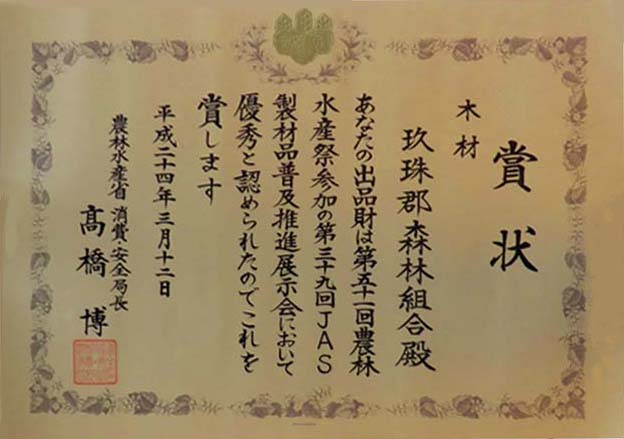 賞状
木材
玖珠郡森林組合殿
あなたの出品財は第五十一回農林
水産祭参加の第三十九回JAS
製材品普及推進展示会において
優秀と認められたのでこれを
賞します
平成二十四年三月十二日
農林水産省 消費・安全局長
髙橋 博